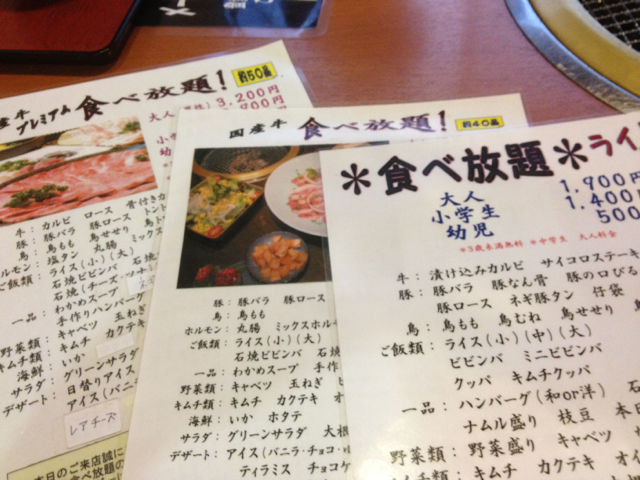 産牛 プレミアム 食べ放題! 約50品
大人 3,200円
小学
幼児
牛:カルビ ロース 骨付きカ
豚:豚バラ 豚ロース トント
鳥:鳥もも 鳥せせり 鳥ト
ホルモン:塩タン 丸腸 ミックス
ご飯類:ライス(小)(大)
石焼ビビンバ 石焼
石焼(チーズ・ツナ
一品:わかめスープ
手作りハンバーグ
野菜類:キャベツ 玉ねぎ
キムチ類:キムチ カクテキ
海鮮:いか
サラダ:グリーンサラダ
デザート:日替りアイス
アイス(バニラ
レアチーズ
本日のご来店誠に
食べ放題の
国産牛 食べ放題! 約40品
豚:豚バラ 豚ロース
鳥:鳥もも
ホルモン:丸腸 ミックスホル
ご飯類:ライス(小)(大)
石焼ビビンバ 石焼
一品:わかめスープ 手作
野菜類:キャベツ 玉ねぎ
キムチ類:キムチ カクテキ オ
海鮮:いか ホタテ
サラダ:グリーンサラダ 大根
デザート:アイス(バニラ・チョコ・ゆ
ティラミス チョコケ
*食べ放題*ライ
大人 1,900円
小学生 1,400
幼児 500
*3歳未満無料 *中学生 大人料金
牛:漬け込みカルビ サイコロステーキ
豚:豚バラ 豚なん骨 豚の口びる
豚ロース ネギ豚タン 仔袋
鳥:鳥もも 鳥むね 鳥せせり
ご飯類:ライス(小)(中)(大)
ビビンバ ミニビビンバ
クッパ キムチクッパ
一品:ハンバーグ(和or洋)
ナムル盛り 枝豆
野菜類:野菜盛り キャベツ
キムチ類:キムチ カクテキ オイ